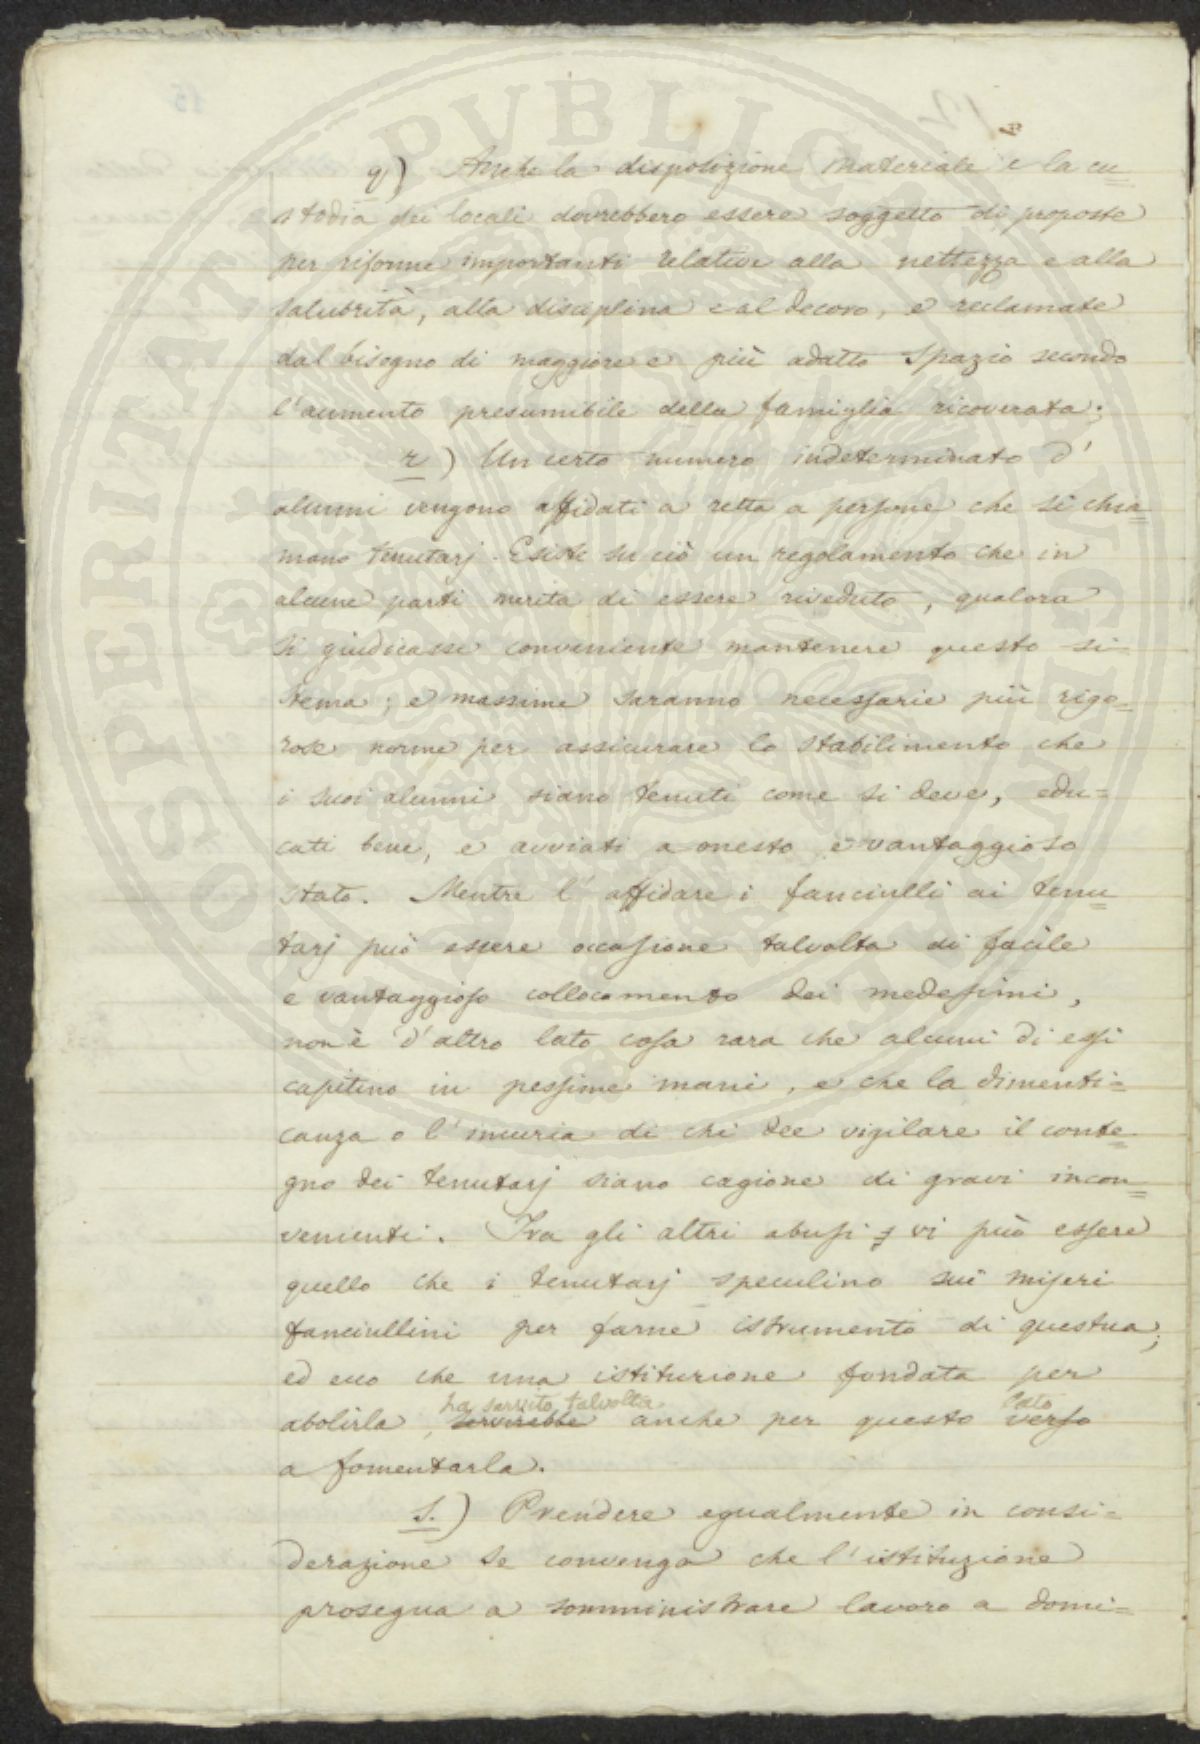 q) Anche la disposizione materiale e la cu=
stodia dei locali dovrebbero essere soggetto di proposte
per riforme importanti relative alla nettezza e alla
salubrità, alla disciplina e al decoro, e reclamate
dal bisogno di maggiore e più adatto spazio secondo
l'aumento presumibile della famiglia ricoverata;
r) Un certo numero indeterminato d'
alunni vengono affidati a retta a persone che si chia=
mano tenutarj. Esiste su ciò un regolamento che in
alcune parti merita di essere riveduto, qualora
si giudicasse conveniente mantenere questo si=
stema; e massime saranno necessarie più rigo=
rose norme per assicurare lo stabilimento che
i suoi alunni siano tenuti come si deve, edu=
cati bene, e avviati a onesto e vantaggioso
stato. Mentre l'affidare i fanciulli ai tenu=
tarj può essere occasione talvolta di facile
e vantaggioso collocamento dei medesimi,
non è d'altro lato cosa rara che alcuni di essi
capitino in pessime mani, e che la dimenti=
canza o l'incuria di chi dee vigilare il conte=
gno dei tenutarj siano cagione di gravi incon=
venienti. Fra gli altri abusi vi può essere
quello che i tenutarj speculino sui miseri
fanciullini per farne istrumento di questua;
ed ecco che una istituzione fondata per
ha servito talvolta lato
abolirla, servirebbe anche per questo verso
a fomentarla.
s.) Prendere egualmente in consi=
derazione se convenga che l'istituzione
prosegua a somministrare lavoro a domi=
SOSPERITATI PUBLICAE AUGENDAE